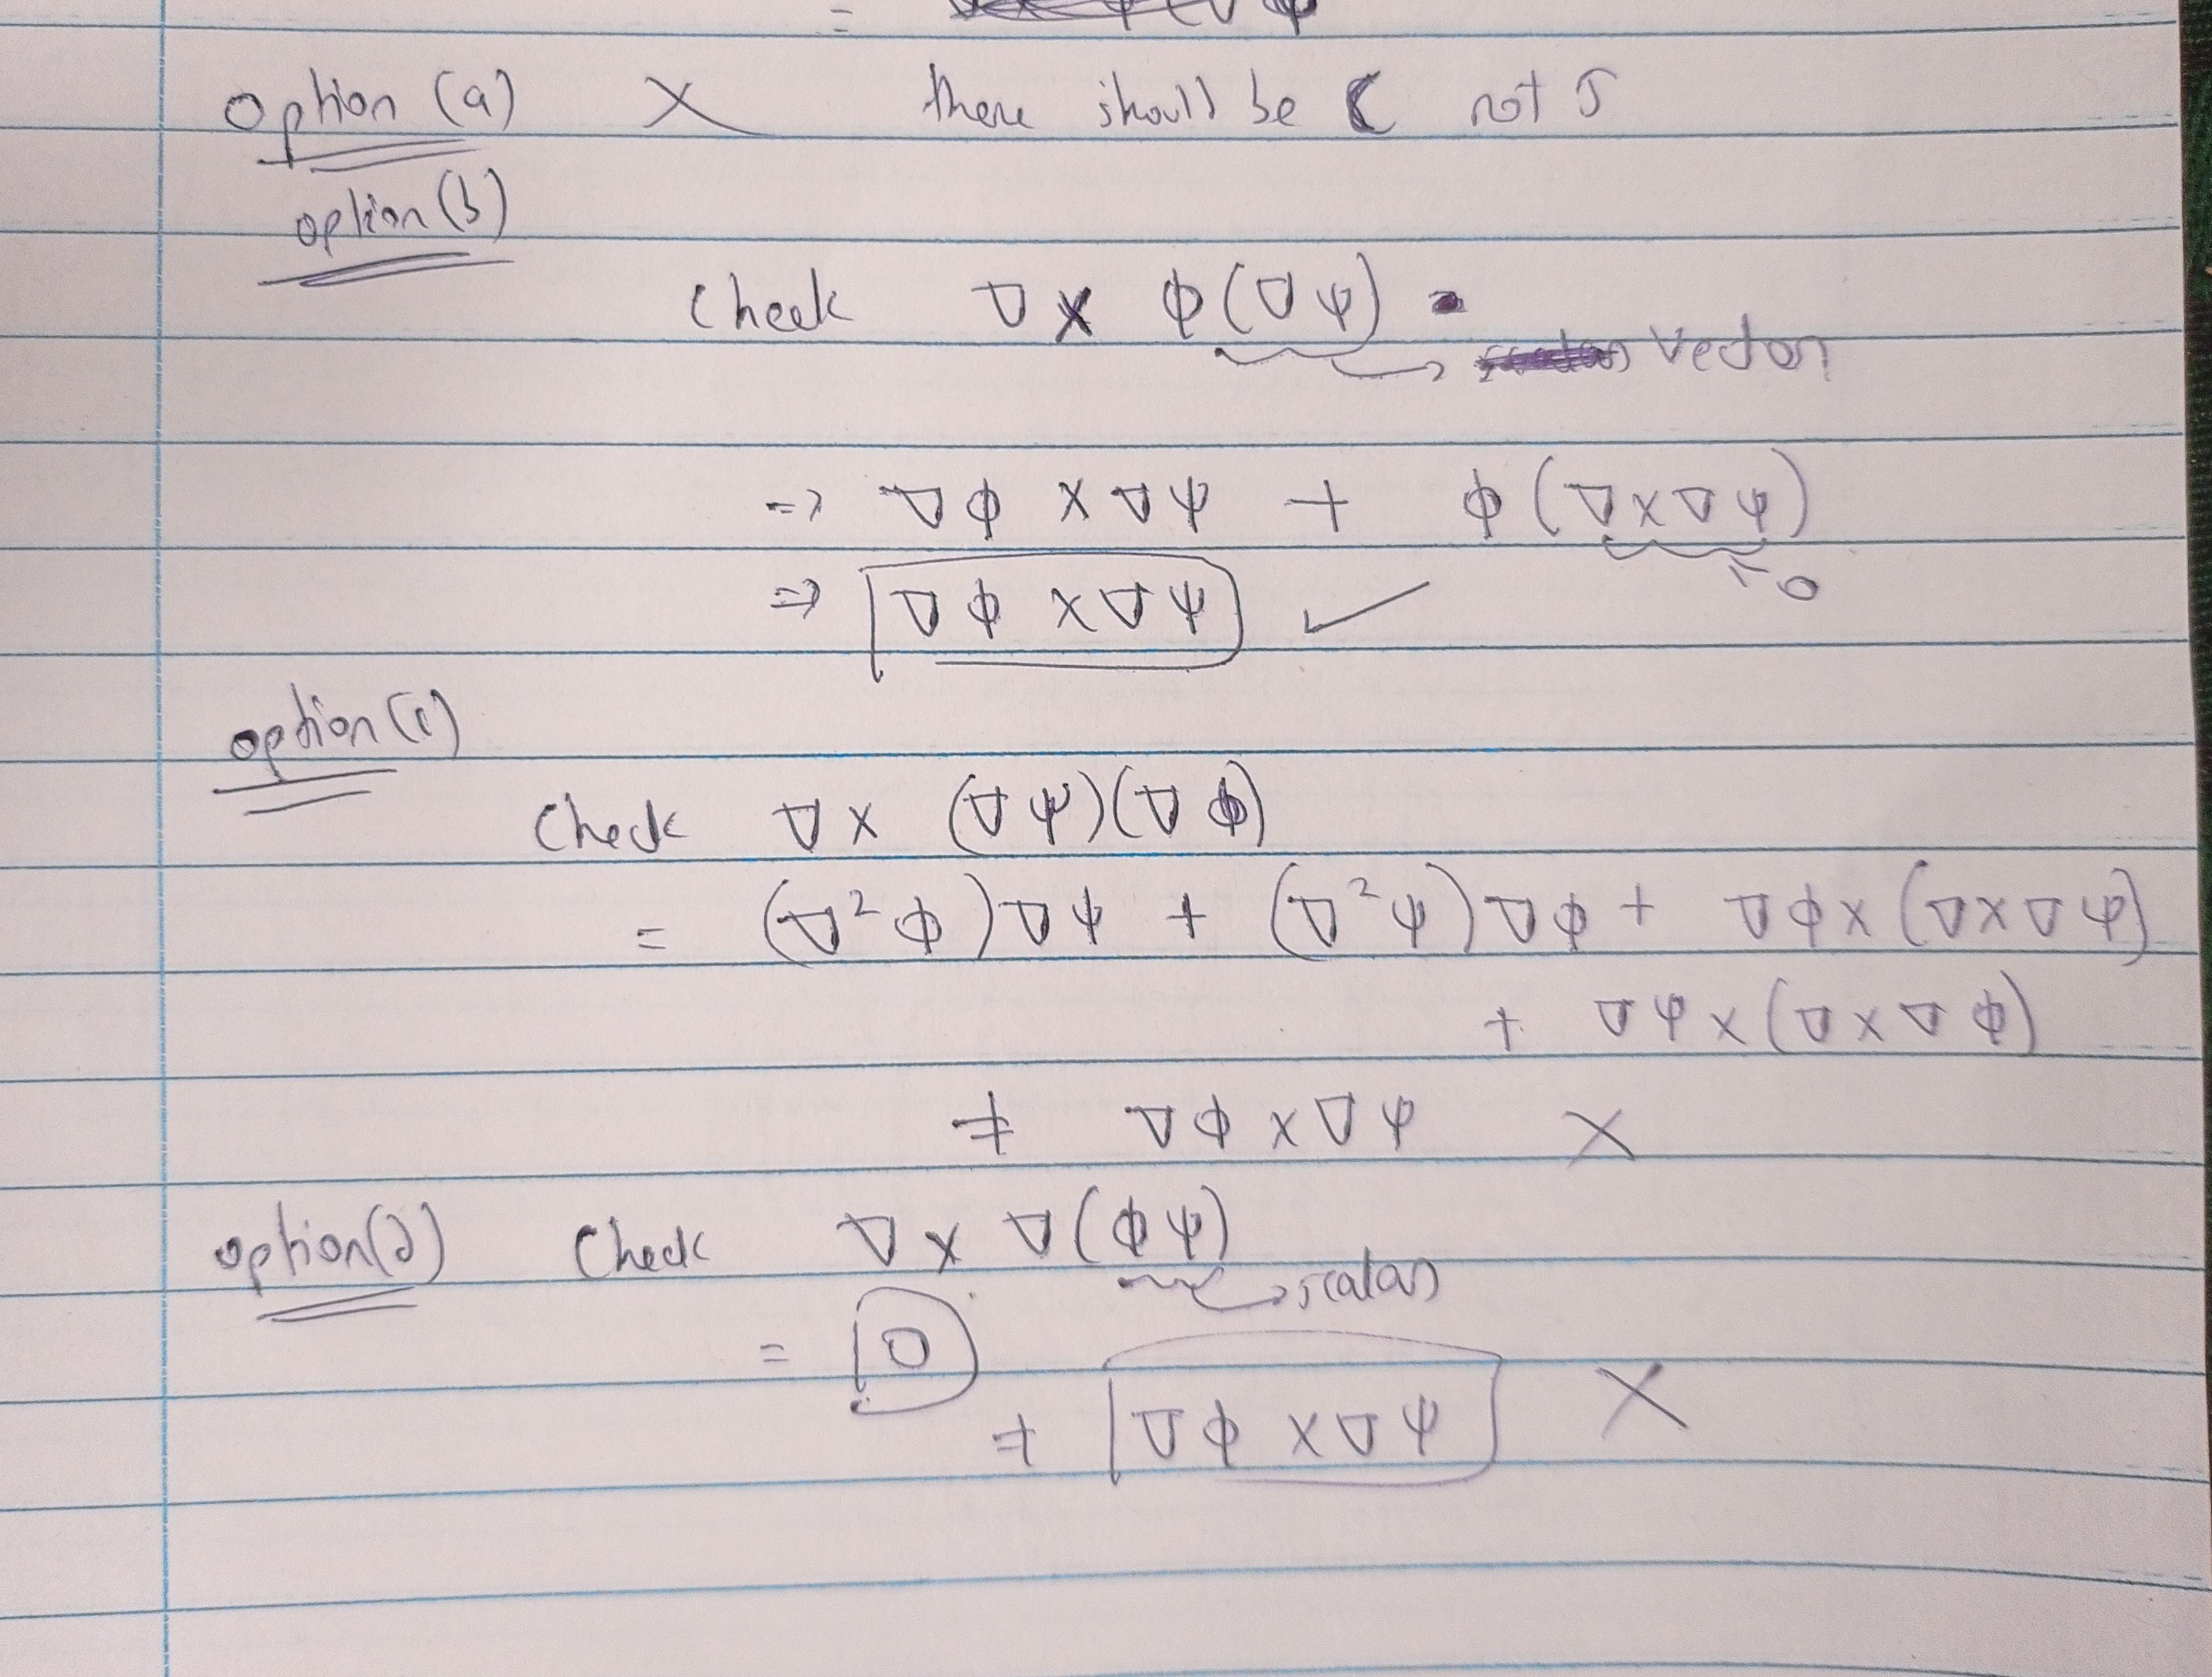 =
option (a) X there should be C not S
option (b)
Check ∇ × ϕ(∇ψ)
vector
=> ∇ϕ × ∇ψ + ϕ(∇×∇ψ)
= 0
=> ∇ϕ × ∇ψ ✓
option (c)
Check ∇ × (∇ψ)(∇ϕ)
= (∇²ϕ)∇ψ + (∇²ψ)∇ϕ + ∇ϕ×(∇×∇ψ)
+ ∇ψ×(∇×∇ϕ)
≠ ∇ϕ × ∇ψ X
option(d) Check ∇ × ∇(ϕψ)
→ scalar
= 0
≠ ∇ϕ × ∇ψ X